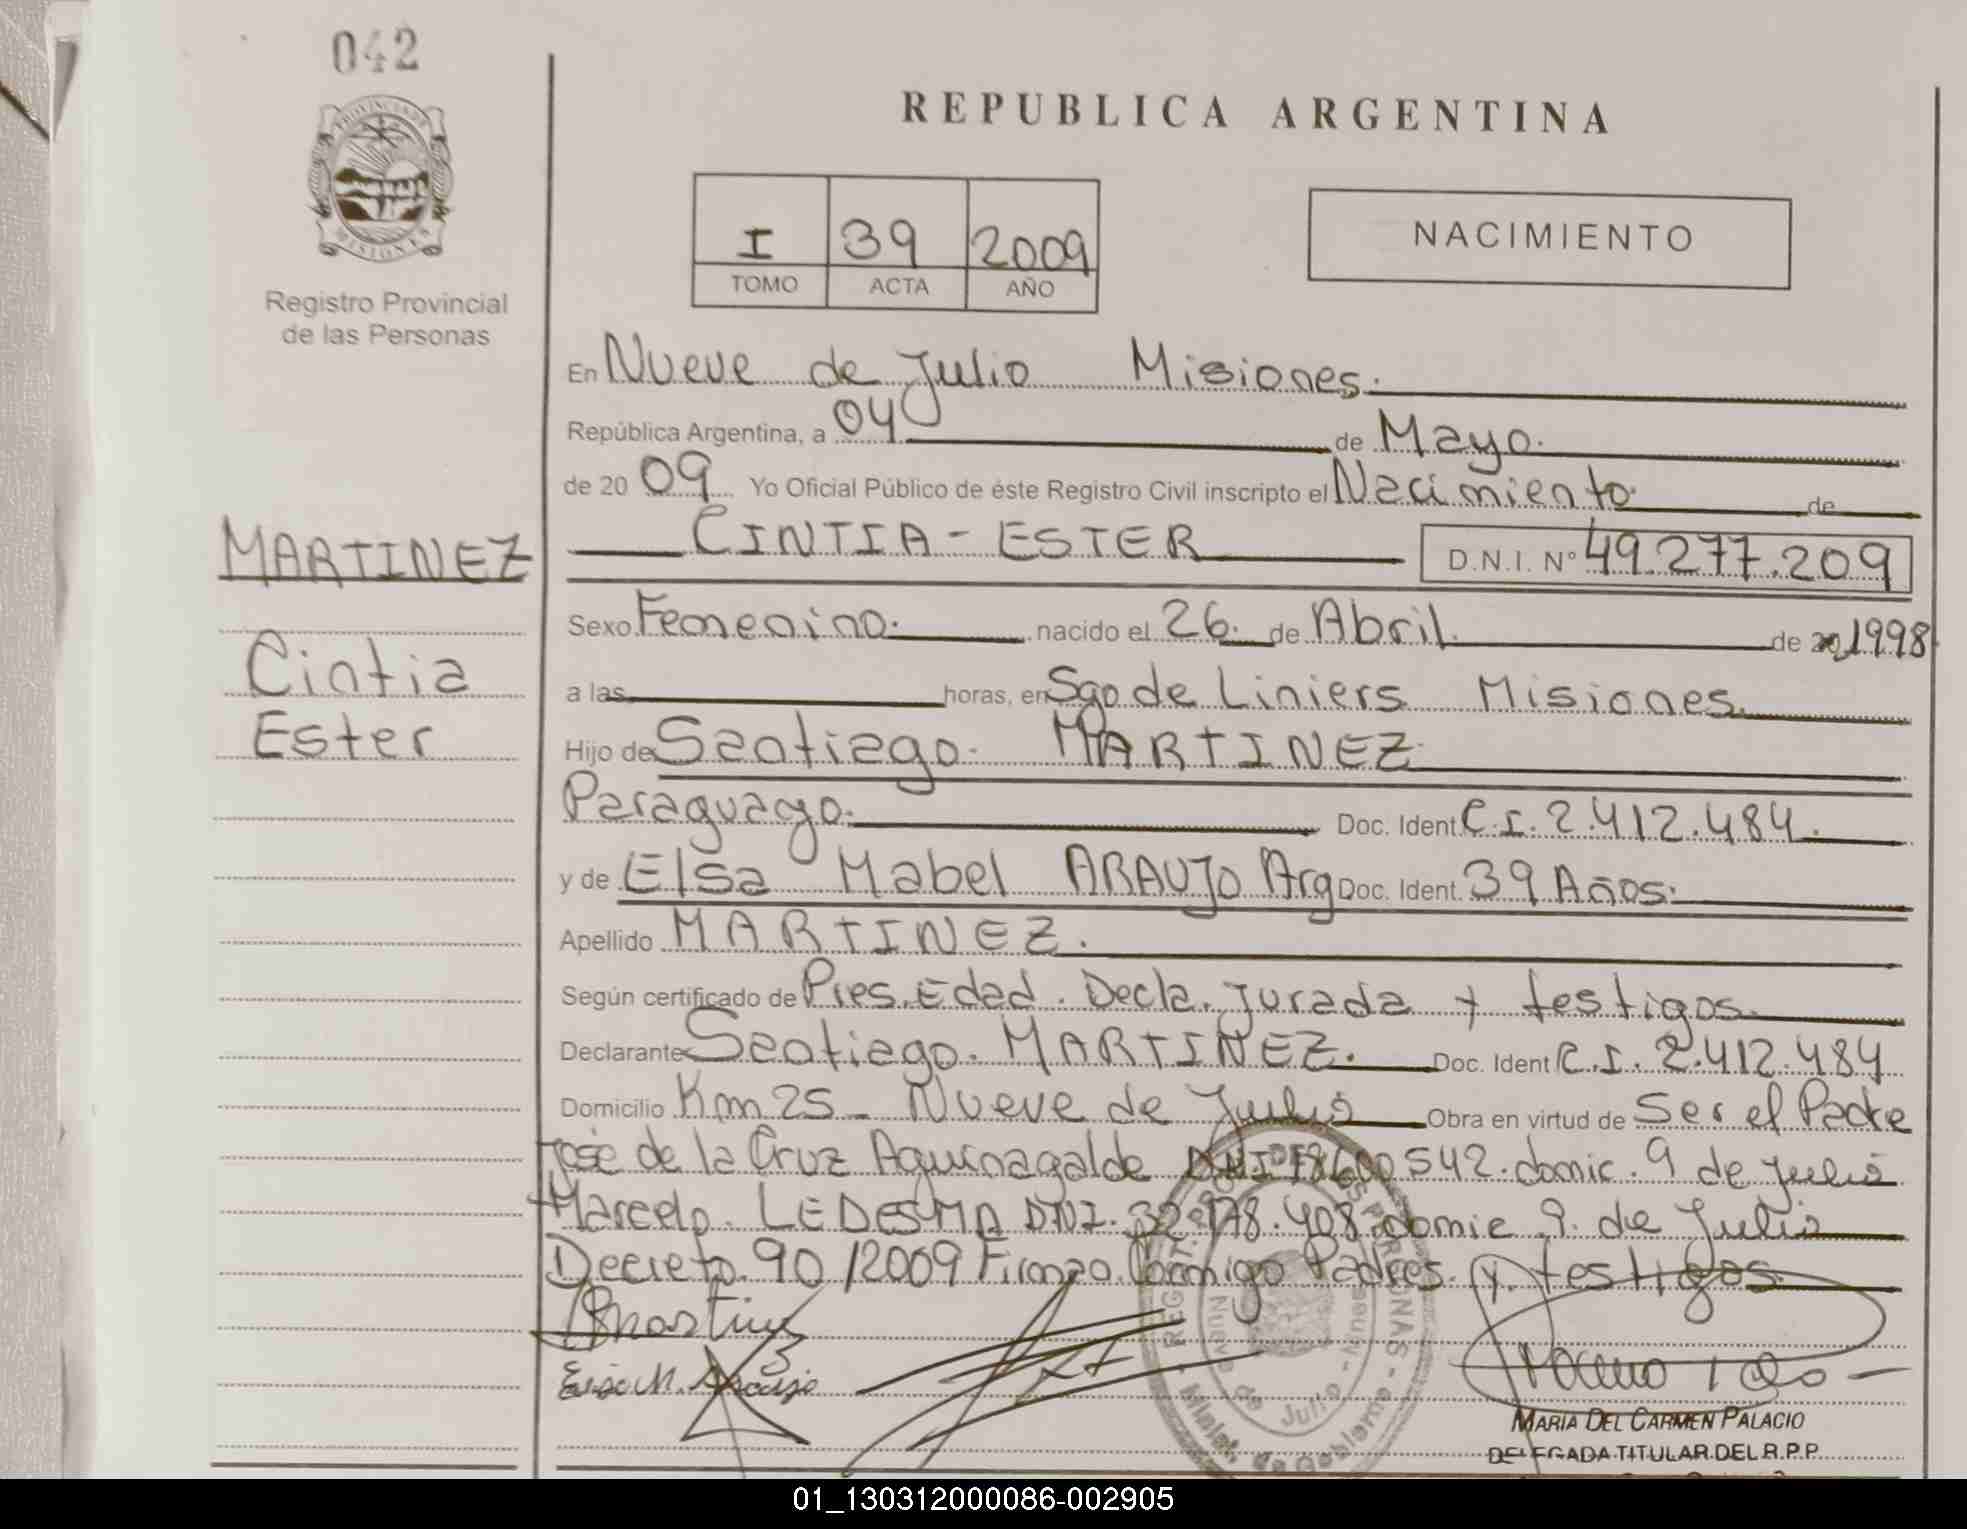 042
REPUBLICA ARGENTINA
PROVINCIA DE
MISIONES
Registro Provincial
de las Personas
I 39 2009
TOMO ACTA AÑO
NACIMIENTO
En Nueve de Julio Misiones.
República Argentina, a 04 de Mayo.
de 20 09 Yo Oficial Público de éste Registro Civil inscripto el Nacimiento de
MARTINEZ
CINTIA - ESTER D.N.I. Nº 49.277.209
Sexo Femenino. nacido el 26. de Abril. de 20 1998
Cintia
a las horas, en Sgo de Liniers Misiones.
Ester
Hijo de Santiago. MARTINEZ
Paraguayo. Doc. Ident. C.I. 2.412.484.
y de Elsa Mabel ARAUJO Arg Doc. Ident. 39 Años.
Apellido MARTINEZ.
Según certificado de Pres. Edad. Decla. Jurada y testigos.
Declarante Santiago. MARTINEZ. Doc. Ident C.I. 2.412.484
Domicilio Km 25 - Nueve de Julio Obra en virtud de Ser el Padre
José de la Cruz Aguinagalde DNI 18600542. domic. 9 de Julio
Marcelo. LEDESMA DNI. 32.178.408. domic. 9. de Julio
Decreto 90/2009 Firman Conmigo Padres. y testigos.
Elsa M. Araujo
REGIST. PROV. DE LAS PERSONAS
Nueve de Julio - Mnes
Minist. de Gobierno
MARIA DEL CARMEN PALACIO
DELEGADA TITULAR DEL R.P.P.
01_130312000086-002905